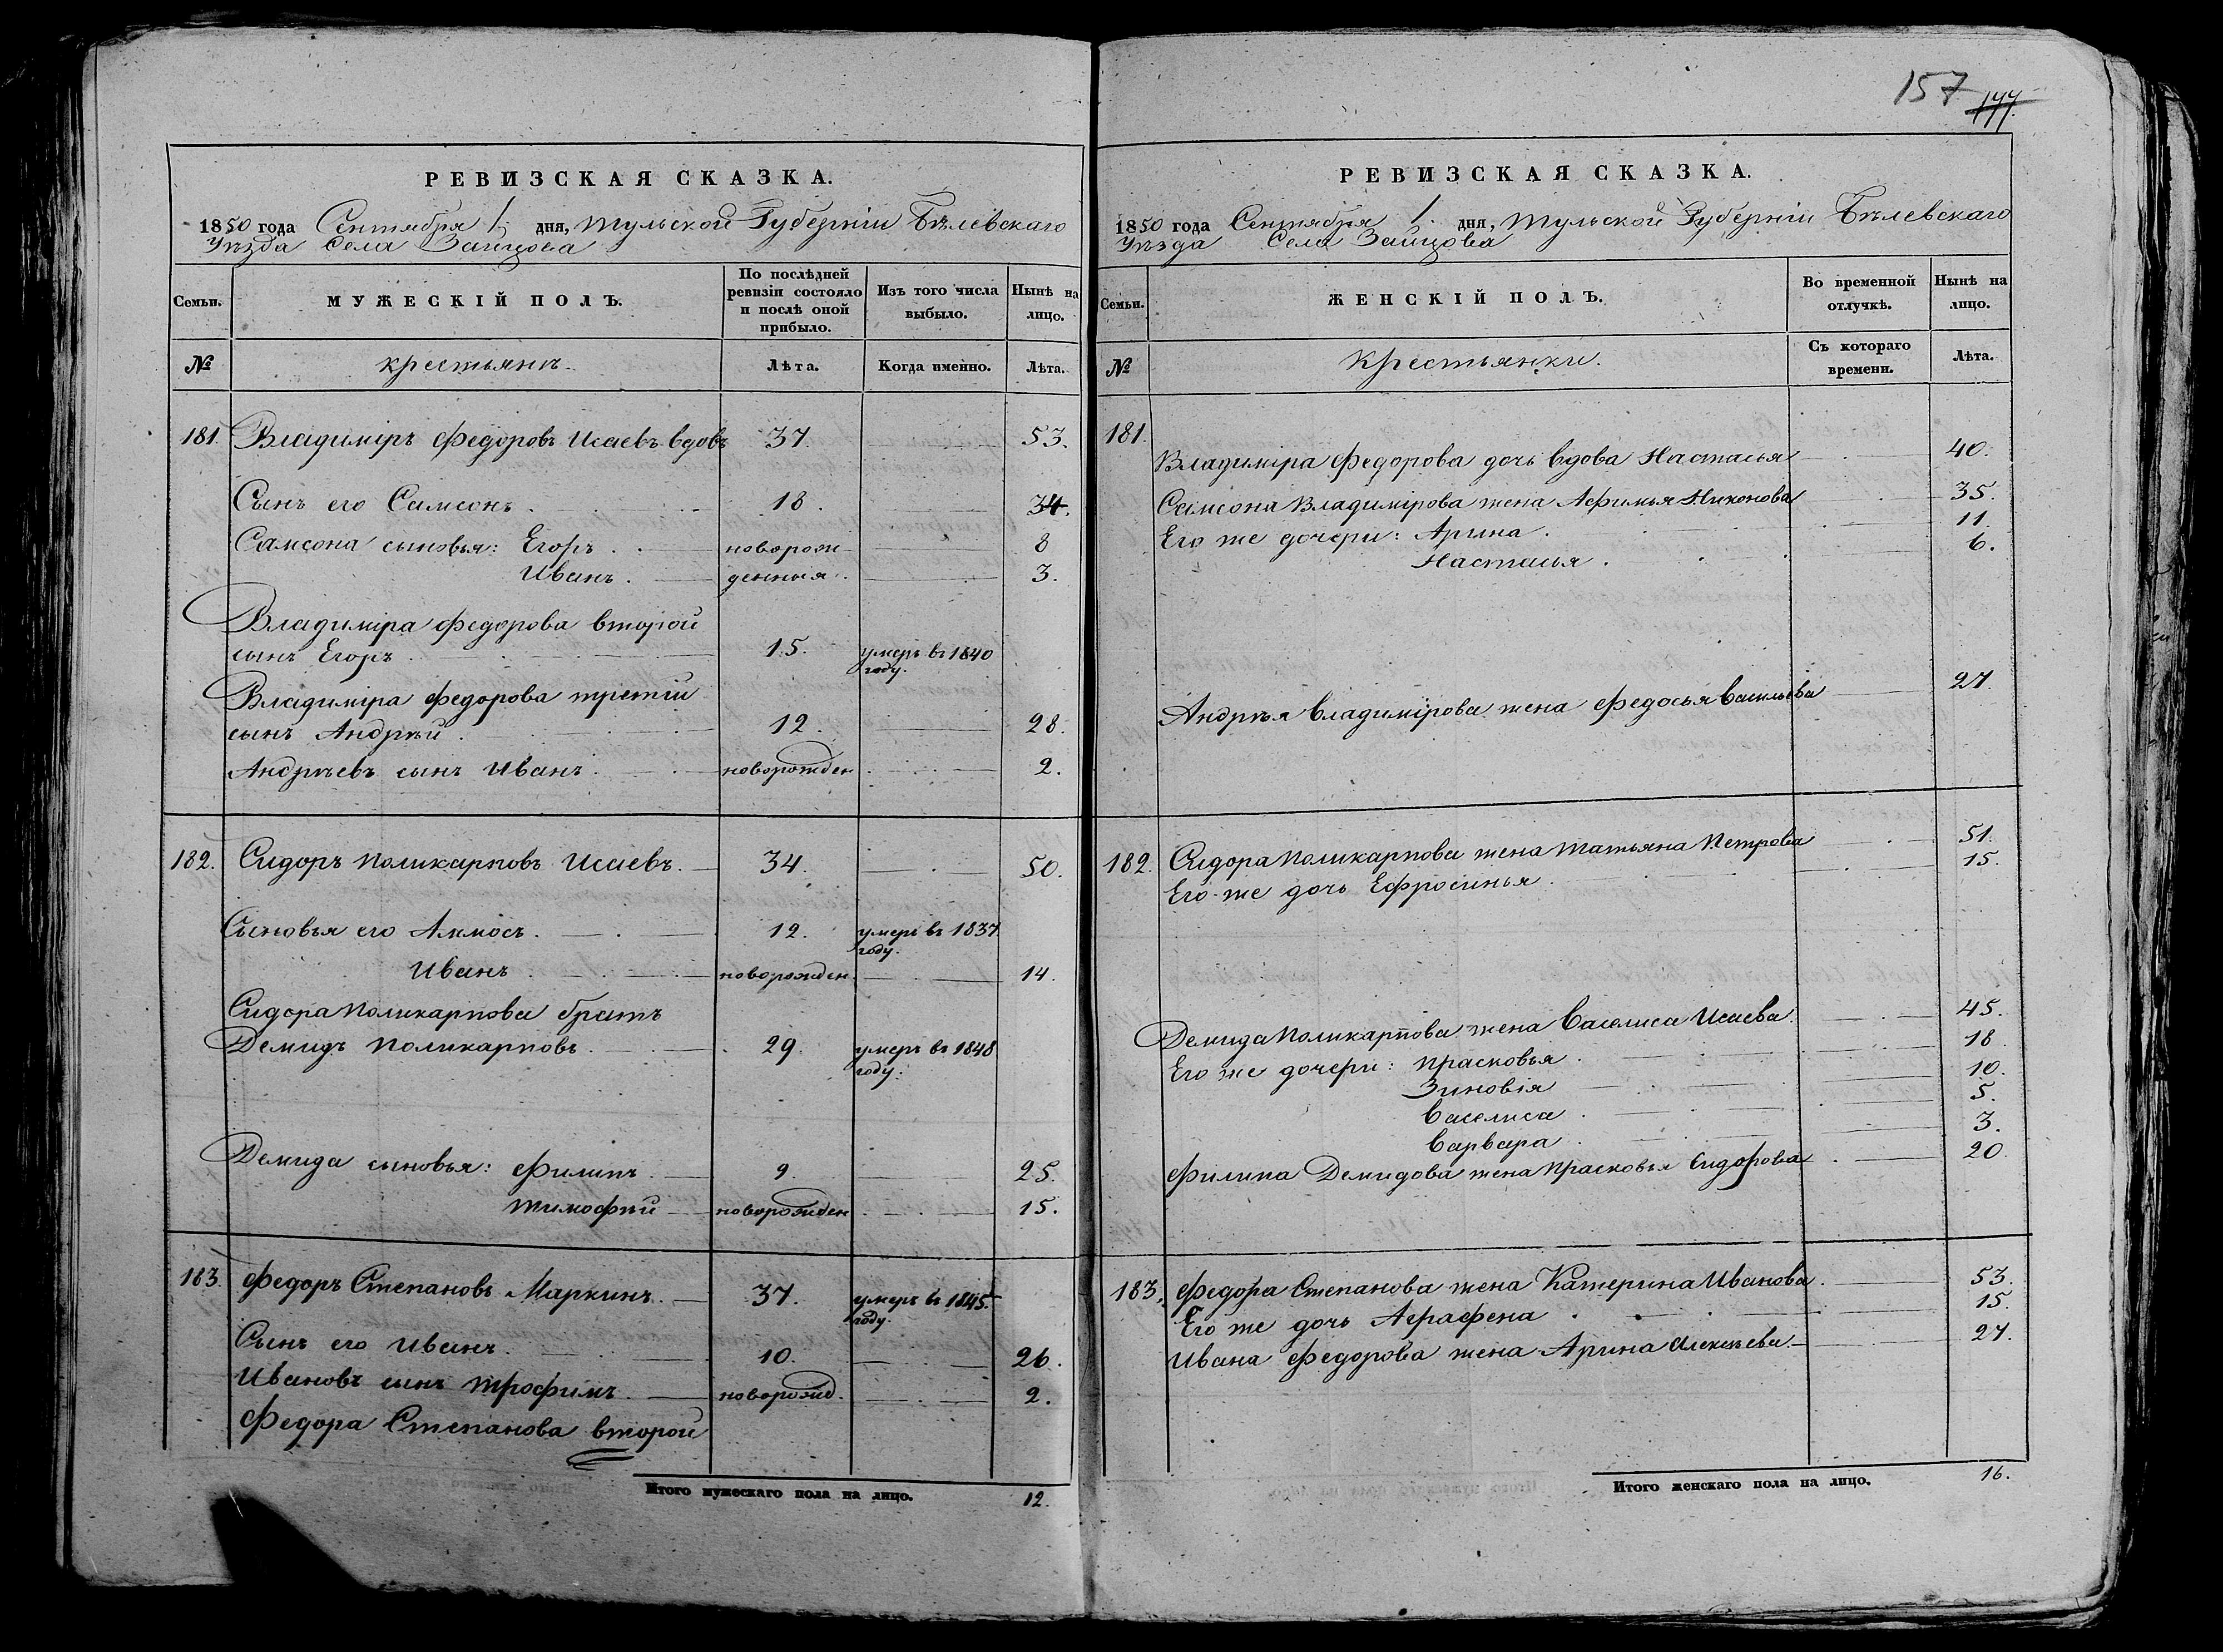 157 177.
РЕВИЗСКАЯ СКАЗКА.
1850 года Сентября 1. дня, Тульской Губерніи Бѣлевскаго
Уѣзда Села Зайцова
Семьи.
МУЖЕСКІЙ ПОЛЪ.
По послѣдней
ревизіи состояло
и послѣ оной
прибыло.
Изъ того числа
выбыло.
Нынѣ на
лицо.
№ крестьянъ. Лѣта. Когда именно. Лѣта.
181. Владиміръ Федоровъ Исаевъ вдовъ 37. 53.
Сынъ его Самсонъ. 18. 34.
Самсона сыновья: Егоръ. новорож- 8
Иванъ. денныя. 3.
Владиміра Федорова второй
сынъ Егоръ. 15. умеръ въ 1840
году.
Владиміра Федорова третій
сынъ Андрѣй. 12. 28.
Андрѣевъ сынъ Иванъ. новорожден. 2.
182. Сидоръ Поликарповъ Исаевъ. 34. 50.
Сыновья его Аммосъ. 12. умеръ въ 1837.
году.
Иванъ. новорожден. 14.
Сидора Поликарпова братъ
Демидъ Поликарповъ. 29. умеръ въ 1848
году.
Демида сыновья: Филипъ. 9. 25.
Тимофѣй новорожден. 15.
183. Федоръ Степановъ Маркинъ. 37. умеръ въ 1845.
году.
Сынъ его Иванъ. 10. 26.
Ивановъ сынъ Трофимъ. новорожд. 2.
Федора Степанова второй
Итого мужескаго пола на лицо. 12.
РЕВИЗСКАЯ СКАЗКА.
1850 года Сентября 1. дня, Тульской Губерніи Бѣлевскаго
Уѣзда Села Зайцова
Семьи.
ЖЕНСКІЙ ПОЛЪ.
Во временной
отлучкѣ.
Нынѣ на
лицо.
№ Крестьянки.
Съ котораго
времени.
Лѣта.
181.
Владиміра Федорова дочь вдова Настасья 40.
Самсона Владимірова жена Афимья Никонова 35.
Его же дочери: Арина. 11.
Настасья. 6.
Андрѣя Владимірова жена Федосья Васильева 27.
182. Сидора Поликарпова жена Татьяна Петрова 51.
Его же дочь Ефросинья. 15.
Демида Поликарпова жена Василиса Исаева. 45.
Его же дочери: Прасковья. 18.
Зиновія 10.
Василиса. 5.
Варвара. 3.
Филипа Демидова жена Прасковья Сидорова 20.
183. Федора Степанова жена Катерина Иванова. 53.
Его же дочь Аграфена 15.
Ивана Федорова жена Арина Алексѣева. 27.
Итого женскаго пола на лицо. 16.